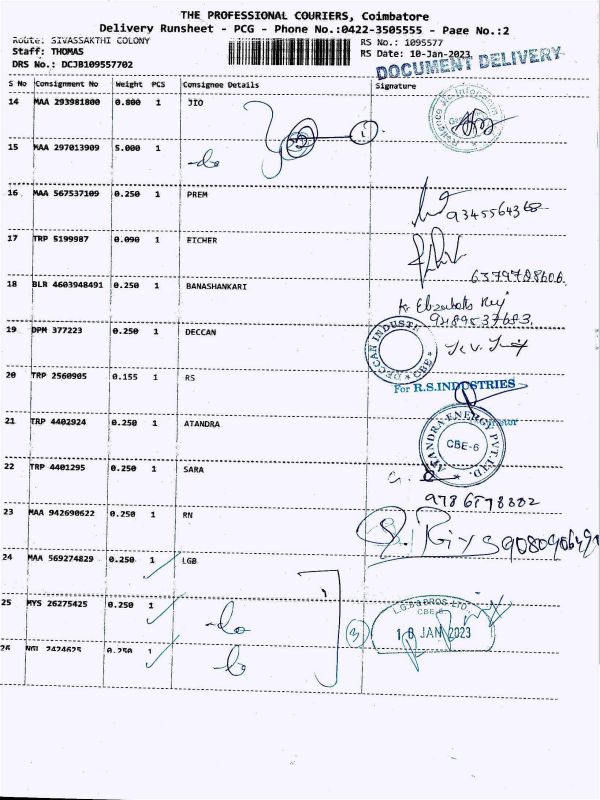 THE PROFESSIONAL COURIERS, Coimbatore
Delivery Runsheet - PCG - Phone No.:0422-3505555 - Page No.:2
Route: SIVASSAKTHI COLONY
RS No.: 1095577
Staff: THOMAS
RS Date: 10-Jan-2023
DRS No.: DCJB109557702
DOCUMENT DELIVERY
S No Consignment No Weight PCS Consignee Details Signature
14 MAA 293981800 0.800 1 JIO
15 MAA 297013909 5.000 1
-do
16 MAA 567537109 0.250 1 PREM
9345564368
17 TRP 5199987 0.090 1 EICHER
6379788606
18 BLR 4603948491 0.250 1 BANASHANKARI
9489537683
19 DPM 377223 0.250 1 DECCAN
DECCAN INDUSTR CBE
20 TRP 2560905 0.155 1 RS
For R.S.INDUSTRIES
21 TRP 4402924 0.250 1 ATANDRA
ATANDRA ENERGY PVT. LTD.
CBE-6
22 TRP 4401295 0.250 1 SARA
23 MAA 942690622 0.250 1 RN
24 MAA 569274829 0.250 1 LGB
25 MYS 26275425 0.250 1
-do
3
L.G.B & BROS. LTD.
CBE-6
JAN 2023
26 NGL 2424625 0.250 1